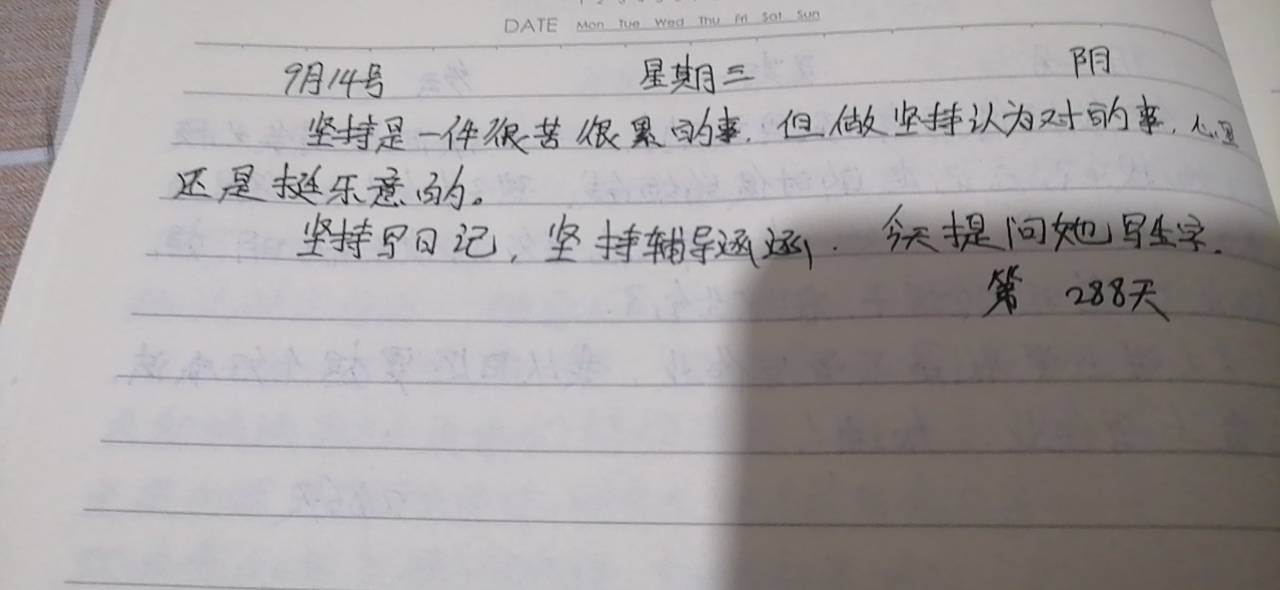 DATE Mon Tue Wed Thu Fri Sat Sun
9月14号 星期三 阴
坚持是一件很苦很累的事,但做坚持认为对的事,心里
还是挺乐意的。
坚持写日记,坚持辅导涵涵,今天提问她写生字.
第 288天